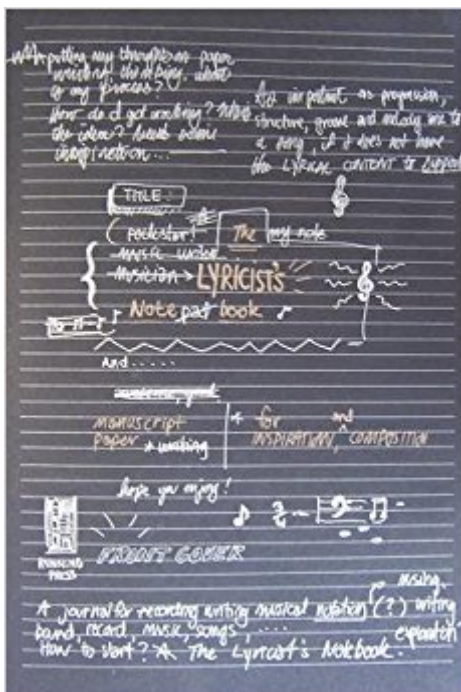 putting my thoughts on paper
writing thinking. what
is my process?
How do I get writing?
the idea? Need some
inspiration...
As important as progression,
structure, groove and melody are to
a song, if it does not have
the LYRICAL CONTENT to support
TITLE:
rockstar! The my note
music writer
Musician LYRICIST'S
Note pad book
And.....
manuscript for and
paper * writing INSPIRATION, COMPOSITION
hope you enjoy!
RUNNING
PRESS
FRONT COVER
A journal for recording writing musical notation (?) writing
band, record, music, songs, .... explanation
How to start? The Lyricist's Notebook.